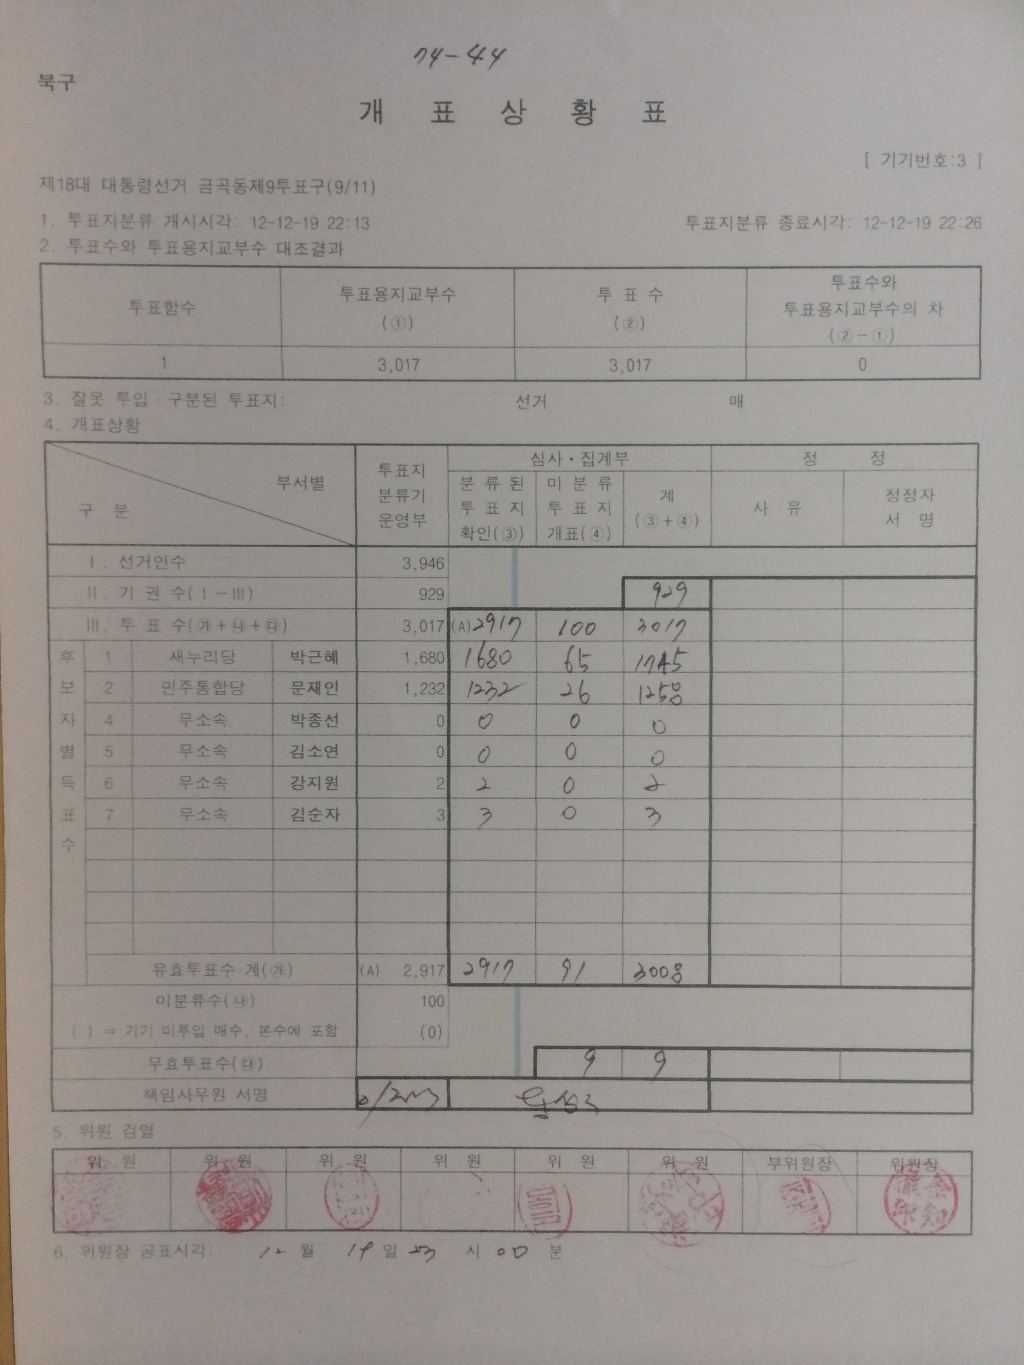 74-44
북구
개 표 상 황 표
[ 기기번호:3 ]
제18대 대통령선거 금곡동제9투표구(9/11)
1. 투표지분류 개시시각: 12-12-19 22:13 투표지분류 종료시각: 12-12-19 22:26
2. 투표수와 투표용지교부수 대조결과
투표함수 투표용지교부수 (①) 투 표 수 (②) 투표수와 투표용지교부수의 차 (②-①)
1 3,017 3,017 0
3. 잘못 투입·구분된 투표지: 선거 매
4. 개표상황
구 분 부서별 투표지 분류기 운영부 심사·집계부 정 정
분 류 된 투 표 지 확인(③) 미 분 류 투 표 지 개표(④) 계 (③+④) 사 유 정정자 서 명
Ⅰ. 선거인수 3,946
Ⅱ. 기 권 수(Ⅰ-Ⅲ) 929 929
Ⅲ. 투 표 수(㉮+㉯+㉰) 3,017 (A)2917 100 3017
후보자별득표수
1 새누리당 박근혜 1,680 1680 65 1745
2 민주통합당 문재인 1,232 1232 26 1258
4 무소속 박종선 0 0 0 0
5 무소속 김소연 0 0 0 0
6 무소속 강지원 2 2 0 2
7 무소속 김순자 3 3 0 3
유효투표수 계(㉮) (A) 2,917 2917 91 3008
미분류수(㉯) 100
( ) = 기기 미투입 매수, 본수에 포함 (0)
무효투표수(㉰) 9 9
책임사무원 서명
5. 위원 검열
위 원 위 원 위 원 위 원 위 원 위 원 부위원장 위원장
6. 위원장 공표시각: 12 월 19 일 23 시 00 분